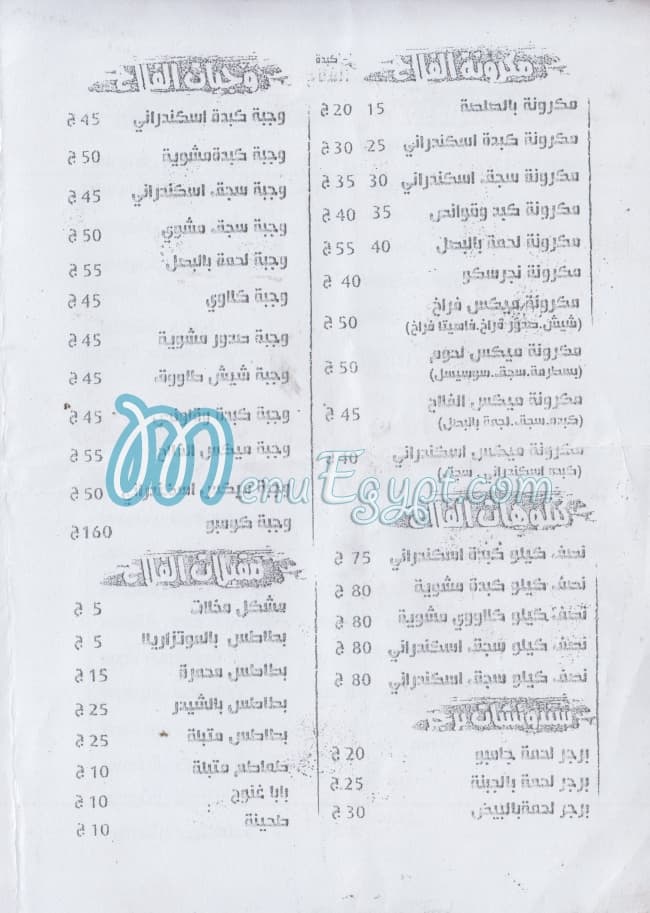 مكرونة الفلاح
كبدة
مكرونة بالصلصة 15 20 ج
مكرونة كبدة اسكندراني 25 30 ج
مكرونة سجق اسكندراني 30 35 ج
مكرونة كبد وقوانص 35 40 ج
مكرونة لحمة بالبصل 40 55 ج
مكرونة نجرسكو 40 ج
مكرونة ميكس فراخ 50 ج
(شيش.صدور فراخ.فاهيتا فراخ)
مكرونة ميكس لحوم 50 ج
(بسطرمة.سجق..سوسيسل)
مكرونة ميكس الفلاح 45 ج
(كبده.سجق..لحمة بالبصل)
مكرونة ميكس اسكندراني 40 ج
(كبدة اسكندراني. سجق)
كيلوهات الفلاح
نصف كيلو كبدة اسكندراني 75 ج
نصف كيلو كبدة مشوية 80 ج
نصف كيلو كالووي مشوية 80 ج
نصف كيلو سجق اسكندراني 80 ج
نصف كيلو سجق اسكندراني 80 ج
برجر لحمة جامبو 20 ج
برجر لحمة بالجبنة 25 ج
برجر لحمةبالبيض 30 ج
وجبات الفلاح
وجبة كبدة اسكندراني 45 ج
وجبة كبدةمشوية 50 ج
وجبة سجق اسكندراني 45 ج
وجبة سجق مشوي 50 ج
وجبة لحمة بالبصل 55 ج
وجبة كلاوي 45 ج
وجبة صدور مشوية 45 ج
وجبة شيش طاووق 45 ج
وجبة كبدة وقوانص 45 ج
وجبة ميكس الفلاح 55 ج
وجبة ميكس اسكندراني 50 ج
وجبة كومبو 160 ج
مقبلات الفلاح
مشكل مخللات 5 ج
بطاطس بالموتزاريلا 5 ج
بطاطس محمرة 15 ج
بطاطس بالشيدر 25 ج
بطاطس متبلة 25 ج
طماطم متبلة 10 ج
بابا غنوج 10 ج
طحينة 10 ج
MenuEgypt.com